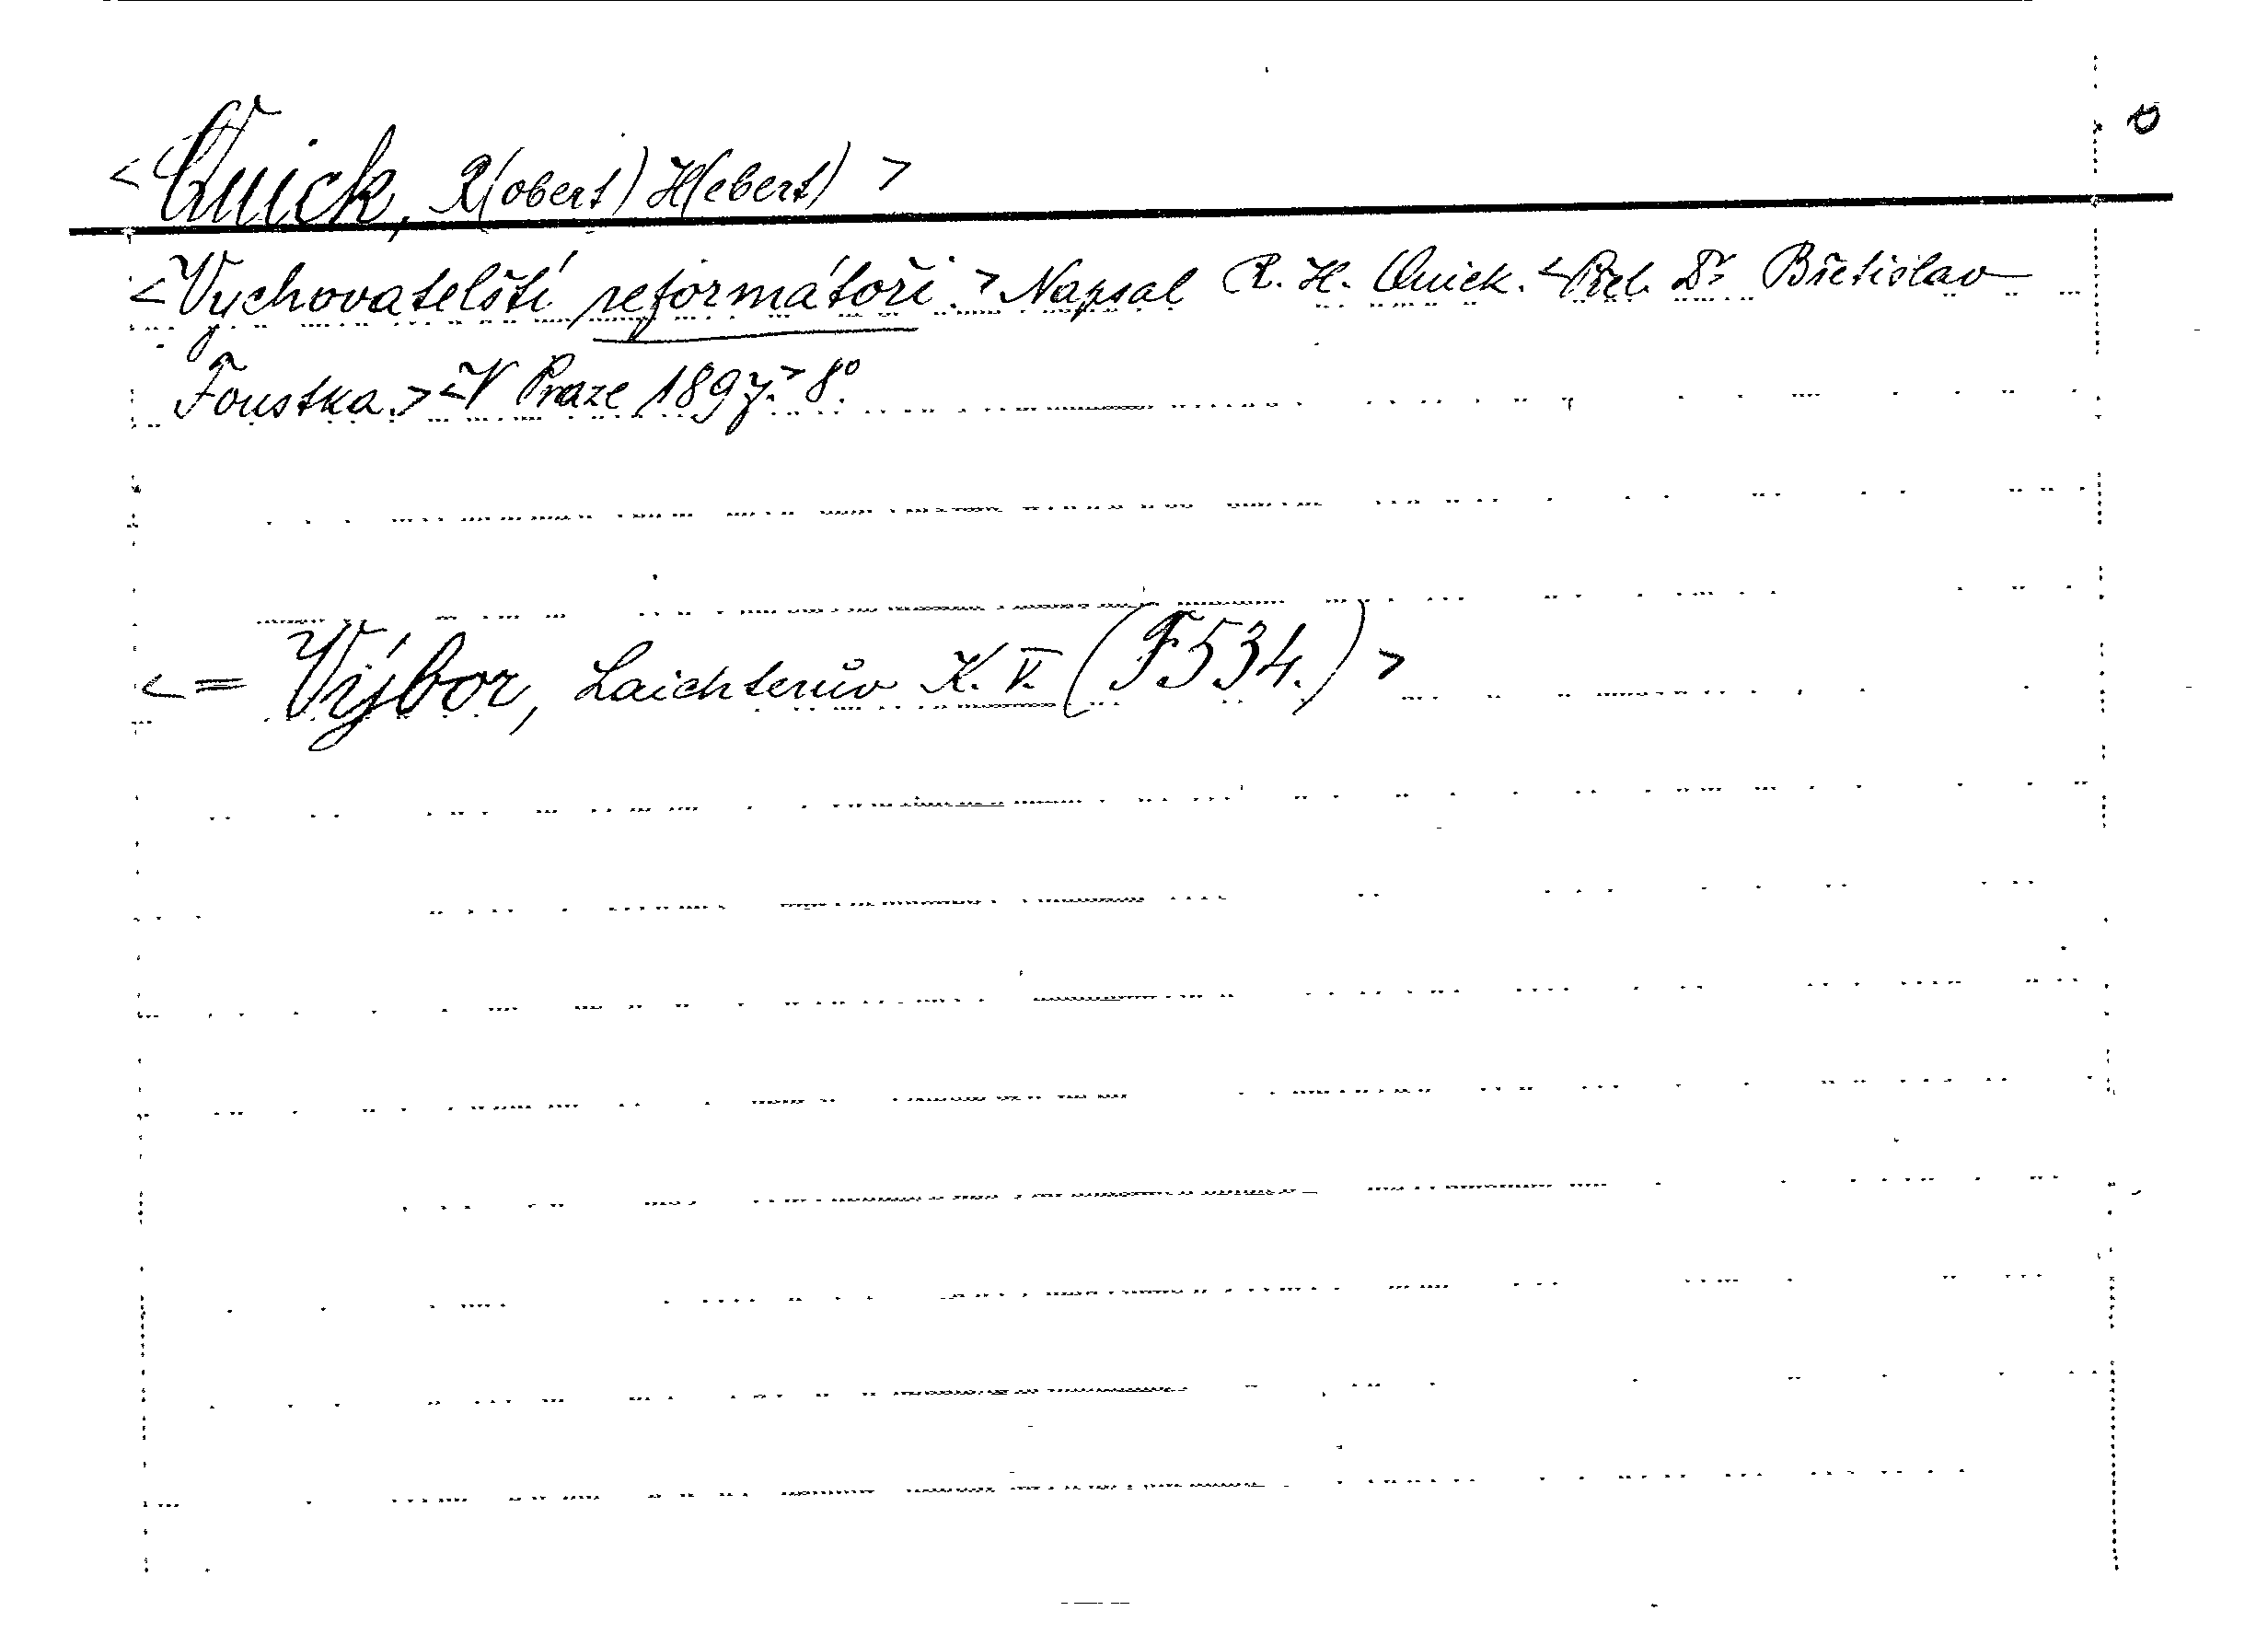 <Quick, R(obert) H(ebert)>
<Vychovatelští reformátoři.> Napsal R. H. Quick. <Přel. Dr. Břetislav
Foustka.> <V Praze 1897.> 8°.
<= Výbor, Laichterův K. V. (F534.)>